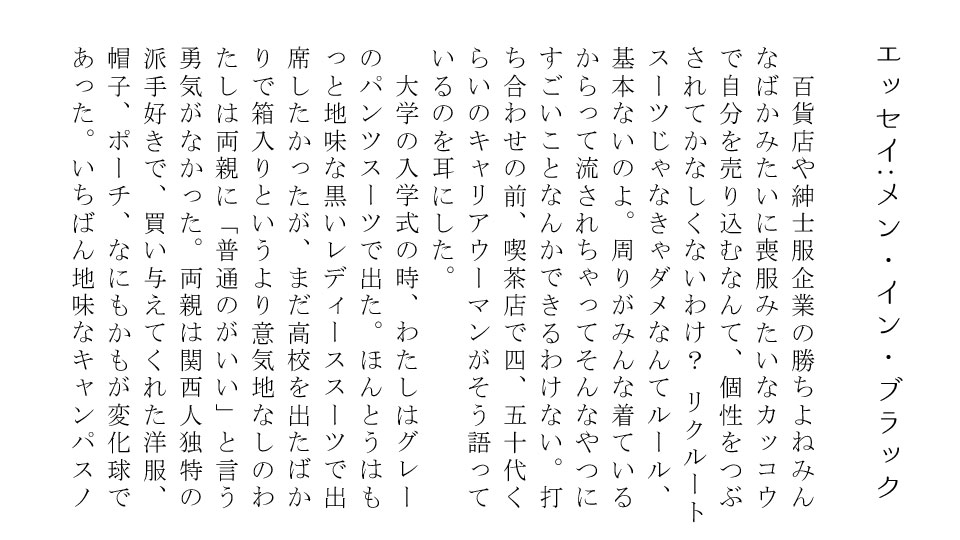 エッセイ:メン・イン・ブラック
　百貨店や紳士服企業の勝ちよねみん
なばかみたいに喪服みたいなカッコウ
で自分を売り込むなんて、個性をつぶ
されてかなしくないわけ？ リクルート
スーツじゃなきゃダメなんてルール、
基本ないのよ。周りがみんな着ている
からって流されちゃってそんなやつに
すごいことなんかできるわけない。打
ち合わせの前、喫茶店で四、五十代く
らいのキャリアウーマンがそう語って
いるのを耳にした。
　大学の入学式の時、わたしはグレー
のパンツスーツで出た。ほんとうはも
っと地味な黒いレディーススーツで出
席したかったが、まだ高校を出たばか
りで箱入りというより意気地なしのわ
たしは両親に「普通のがいい」と言う
勇気がなかった。両親は関西人独特の
派手好きで、買い与えてくれた洋服、
帽子、ポーチ、なにもかもが変化球で
あった。いちばん地味なキャンパスノ